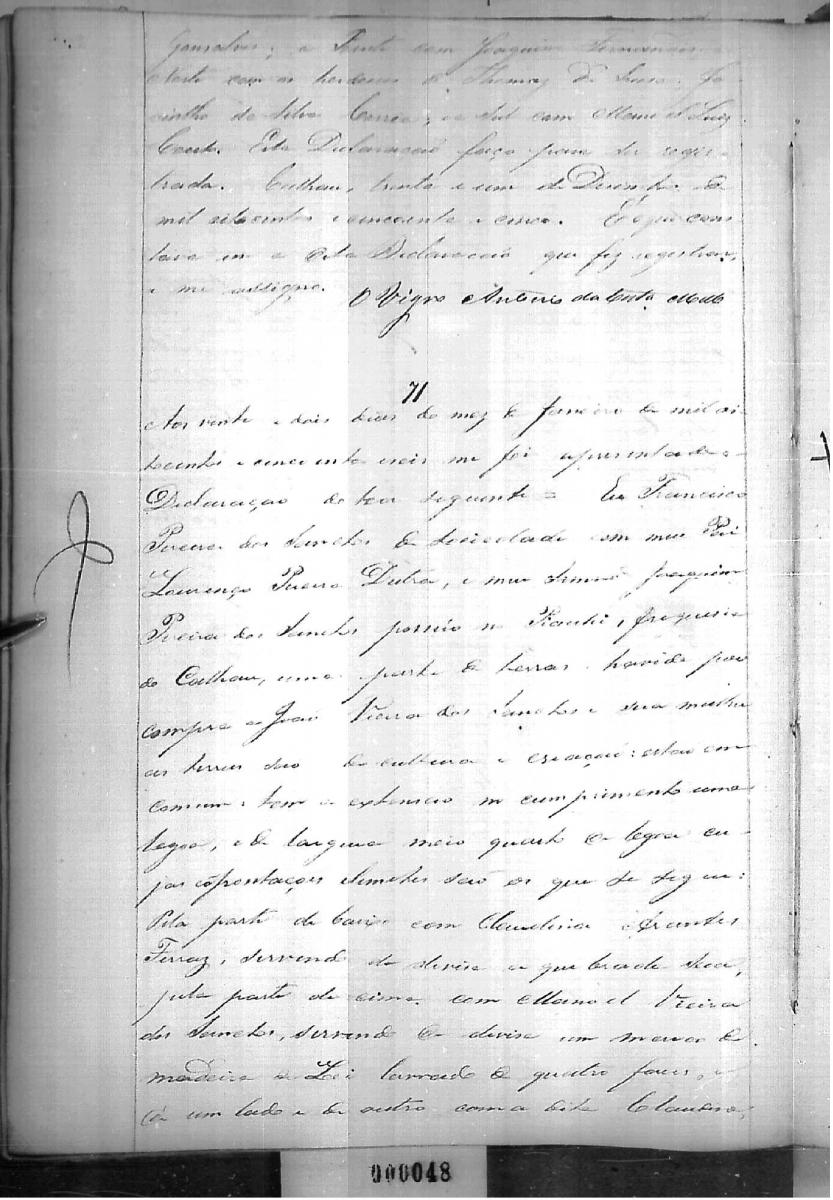 Gonsalves; a Leste com Joaquim Fernandes
Norte com os herdeiros de Thomaz de Sousa, Ja-
cintho da Silva Correa, e ao Sul com Manoel Luiz
Couto. Esta Declaração faço para ser regis-
trada. Calhau, trinta e um de Dezembro de
mil oitocentos e cincoenta e cinco. E o que cons-
tava em a dita Declaração que fiz registrar,
e me assigno. O Vigro Antonio da Costa
71
Aos vinte e dois dias do mez de Janeiro de mil oi-
tocentos e cincoenta e seis me foi apresentada a
Declaração do teor seguinte = Eu Francisco
Pereira dos Sanctos de sociedade com meu Pai
Lourenço Pereira Dutra, e meu Irmão Joaquim
Pereira dos Sanctos possuo no freguesia
do Calhau, uma parte de terras havida por
compra a João Vieira dos Sanctos e sua mulher
as terras são de cultura e criação: estão em
comum e tem a extensão em cumprimento uma
legoa, e de largura meio quarto de legoa cu-
jas confrontações e limites são os que se segue:
Pela parte de baixo com Claudina Arantes
Ferraz, servindo de devisa a quebrada seca,
pela parte de cima com Manoel Vieira
dos Sanctos, servindo de devisa um marco de
madeira de Lei lavrado de quatro faces, e
de um lado e de outro com a dita Claudina,
000048